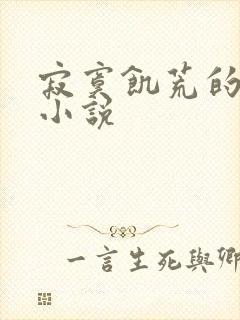 寂寞飢荒的
小說
一言生死與卿